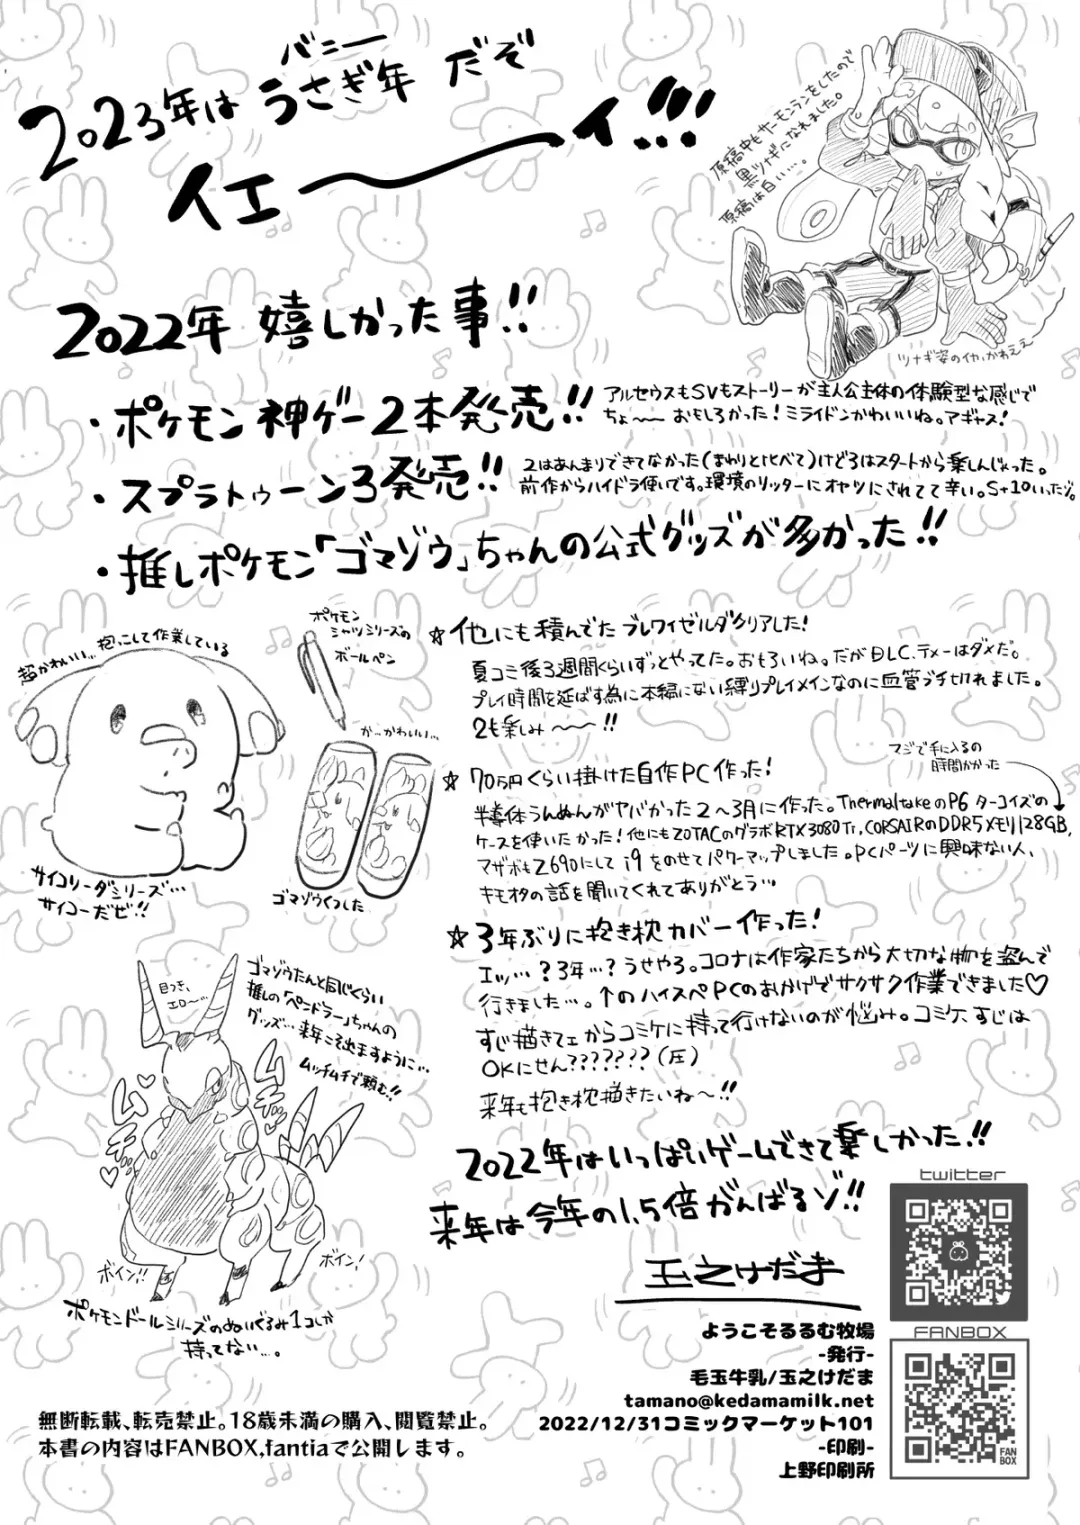 バニー
2023年は うさぎ年 だぞ
イエ〜〜イ!!!
原稿中もサーモンランをしたので
黒ツナギになれました。
原稿は白い…。
ツナギ姿のイカ、かわええ
2022年 嬉しかった事!!
・ポケモン神ゲー2本発売!!
アルセウスもSVもストーリーが主人公主体の体験型な感じで
ちょ〜〜おもしろかった!ミライドンかわいいね。アギャス!
・スプラトゥーン3発売!!
2はあんまりできてなかった(まわりと比べて)けど3はスタートから楽しんじゃった。
前作からハイドラ使いです。環境のリッターにオヤツにされてて辛い。S+10いったゾ。
・推しポケモン「ゴマゾウ」ちゃんの公式グッズが多かった!!
超かわいい…抱っこして作業している
サイコソーダシリーズ…
サイコーだゼ!!
ポケモン
シャツシリーズの
ボールペン
か…かわいい…
ゴマゾウくつした
☆他にも積んでたブレワイゼルダクリアした!
夏コミ後3週間くらいずっとやってた。おもろいね。だがDLC、テメーはダメだ。
プレイ時間を延ばす為に本編にない縛りプレイメインなのに血管ブチ切れました。
2も楽しみ〜〜!!
☆70万円くらい掛けた自作PC作った!
マジで手に入るの
時間かかった
半導体うんぬんがヤバかった2〜3月に作った。ThermaltakeのP6 ターコイズの
ケースを使いたかった!他にもZOTACのグラボRTX3080Ti,CORSAIRのDDR5メモリ128GB,
マザボもZ690にして i9をのせてパワーマップしました。PCパーツに興味ない人、
キモオタの話を聞いてくれてありがとう…
☆3年ぶりに抱き枕カバー作った!
エッ…?3年…?うせやろ。コロナは作家たちから大切な物を盗んで
行きました…。↑のハイスペPCのおかげでサクサク作業できました♡
すじ描きてェからコミケに持って行けないのが悩み。コミケ、すじは
OKにせん???????(圧)
来年も抱き枕描きたいね〜!!
目つき、
エロ〜…
ゴマゾウたんと同じくらい
推しの「ペンドラー」ちゃんの
グッズ…来年こそ出ますように…
ムッチムチで頼む!!
ムチ…♡
ムチッ
ボイン!!
ボイン!
ポケモンドールシリーズのぬいぐるみ1コしか
持ってない…。
2022年はいっぱいゲームできて楽しかった!!
来年は今年の1.5倍がんばるゾ!!
玉之けだま
twitter
FANBOX
FAN
BOX
ようこそるるむ牧場
-発行-
毛玉牛乳/玉之けだま
tamano@kedamamilk.net
2022/12/31コミックマーケット101
-印刷-
上野印刷所
無断転載、転売禁止。18歳未満の購入、閲覧禁止。
本書の内容はFANBOX,fantiaで公開します。